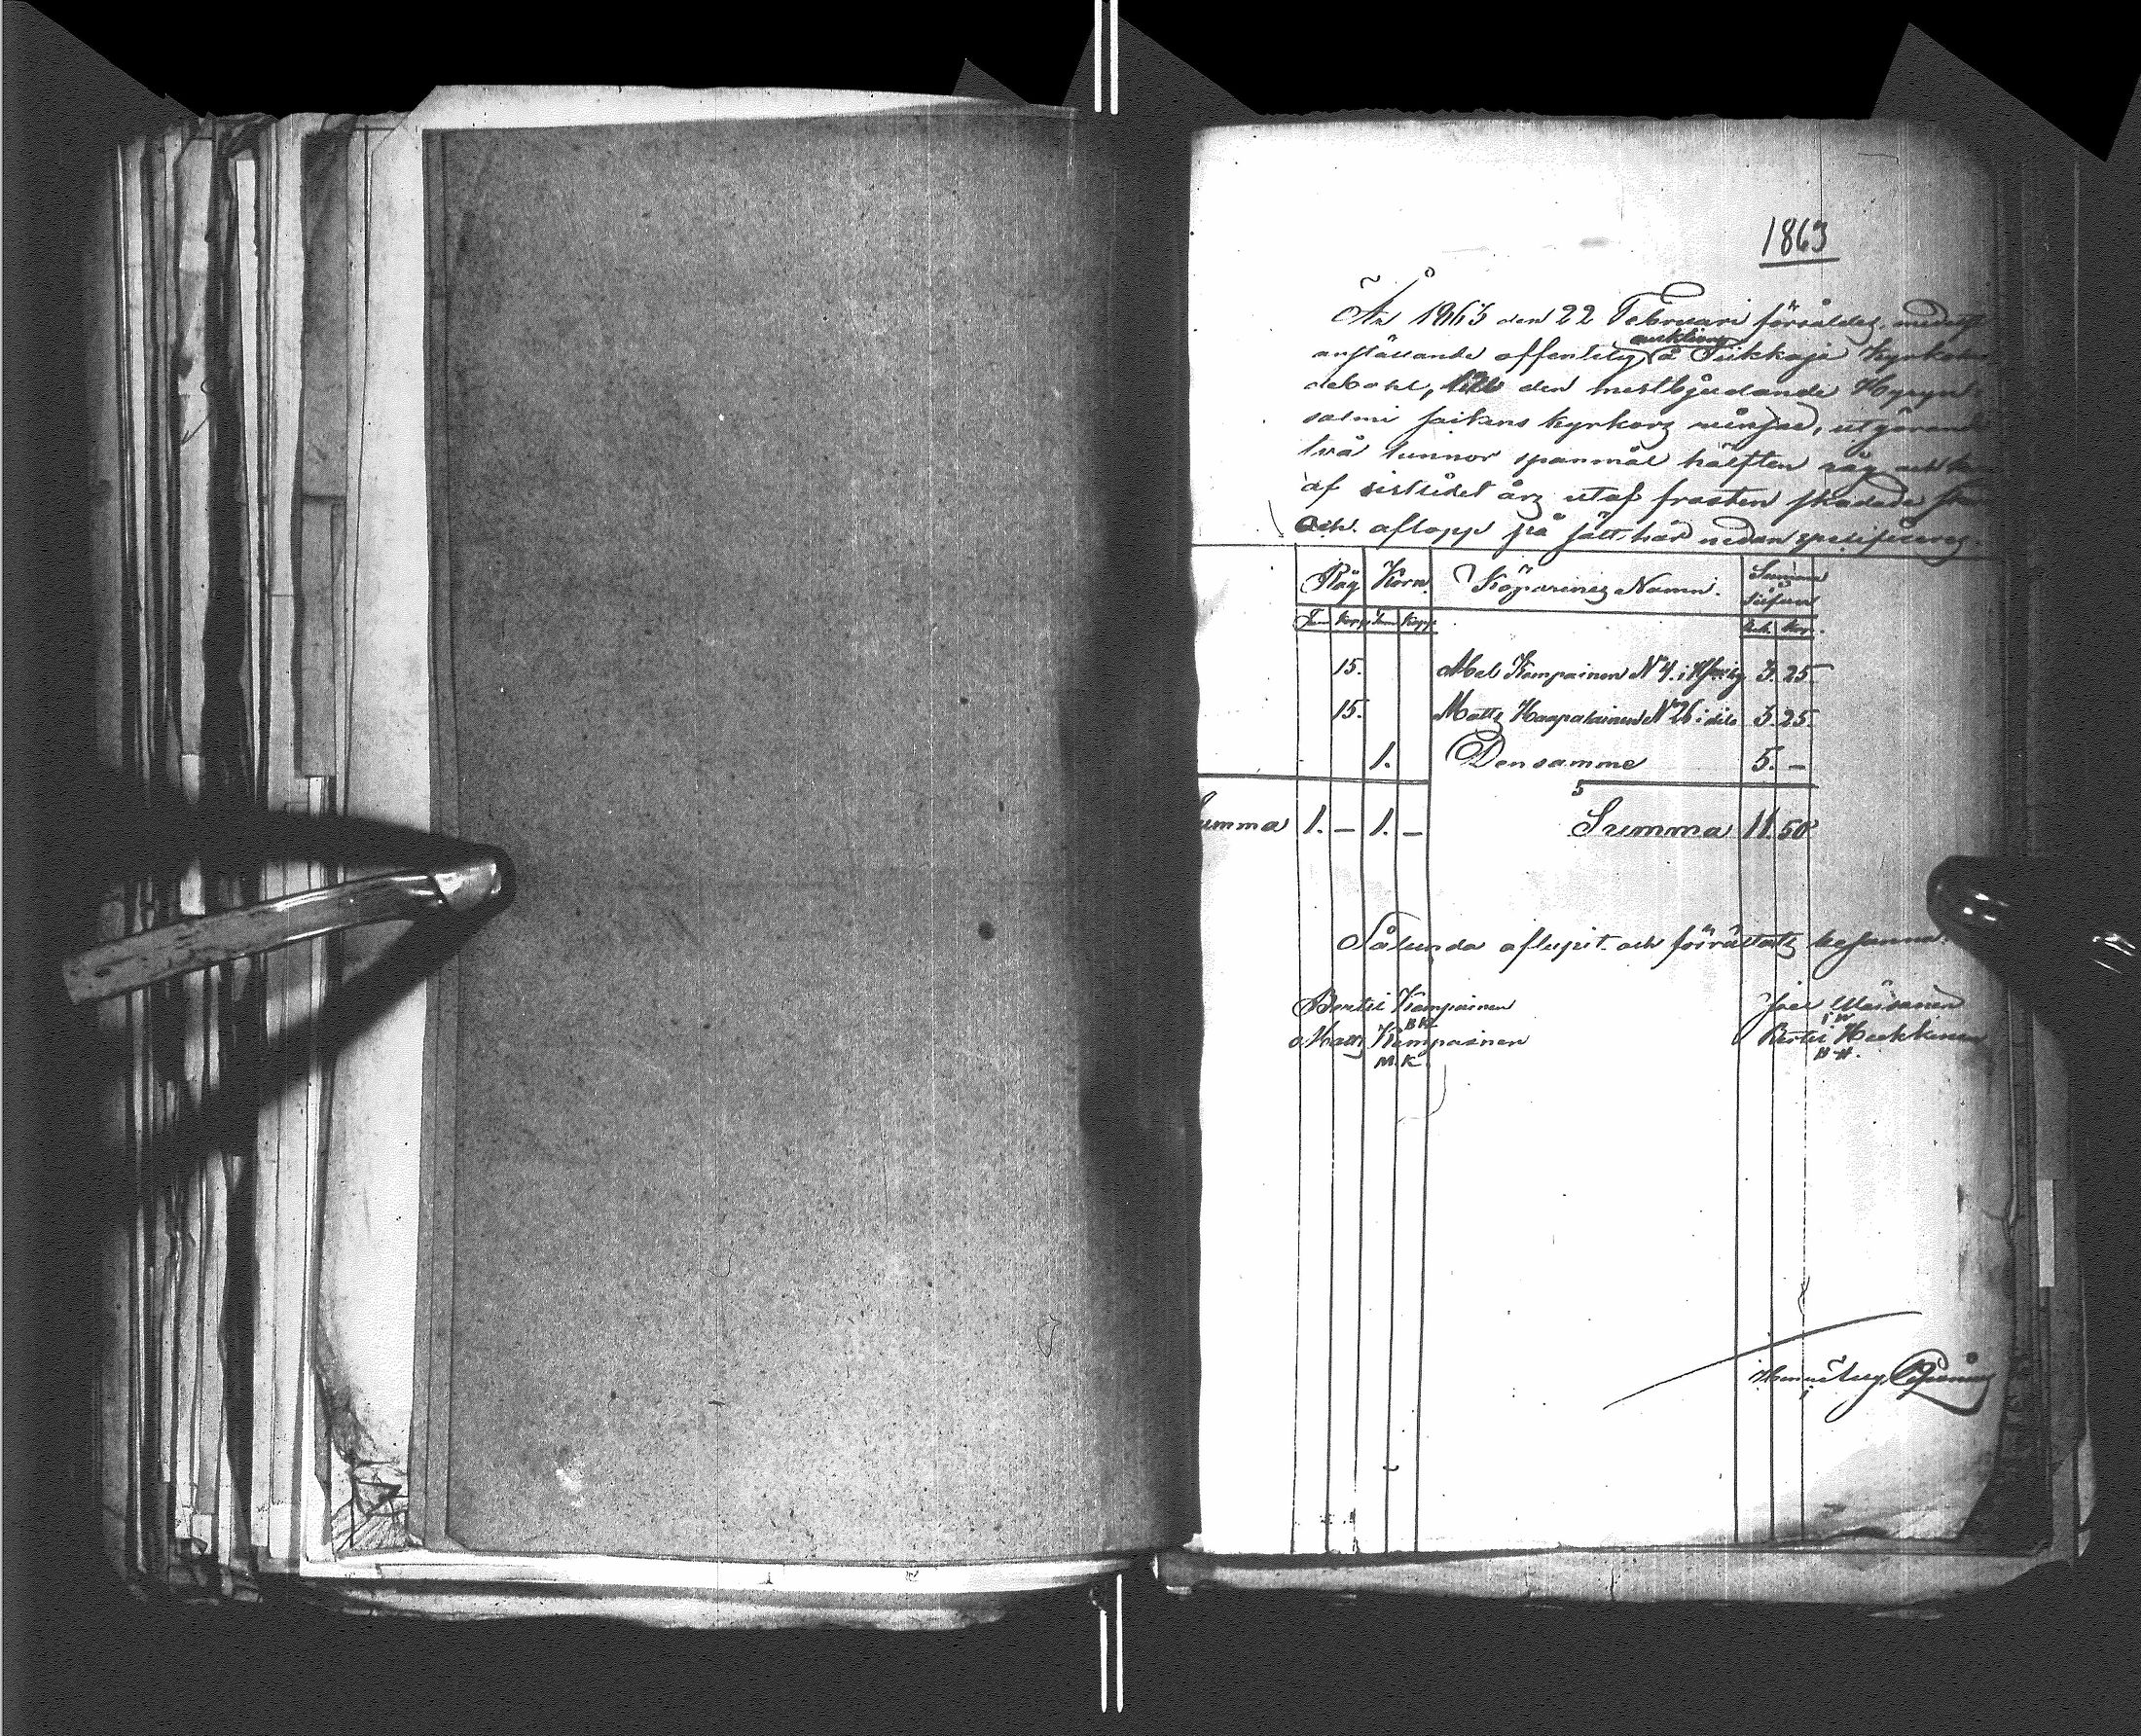 1863
År 1863 den 22 Februari försåldes, medelst
anställande offentlig auktion å Seikkaja kyrko
debohl, till den mestbjudande Hyryn-
salmi sockens kyrkors, utgörande
två tunnor spanmål hälften råg och
af sistlidet års utaf frosten skadade
och aflopp på sätt här nedan specificeras.
Råg Korn. Köparenes Namn. Summa Silfver
Tun Kapp Tun Kapp Rub. Kop.
15. Abel Kempainen N 4. i 3. 25.
15. Matts Haapalainen N 26 i dito 3. 25.
1. Densamme 5. –
Summa 1. – 1. – Summa 11. 50
Sålunda aflupit och förrättadt besanna:
Bertil Kempainen Joel Väisänen
BK
Matts Kempainen Bertil Heikkinen
M.K. H H.